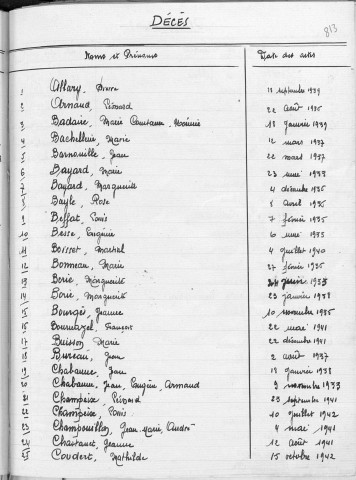 DÉCÈS
813
Noms et Prénoms Date des actes
1 Allary, Pierre 13 septembre 1939
2 Arnaud, Léonard 22 août 1935
3 Badaire, Marie Constance 18 janvier 1939
4 Bachellerie, Marie 12 mars 1937
5 Barnouille, Jean 22 mars 1937
6 Bayard, Marie 23 mai 1933
7 Bayard, Marguerite 4 décembre 1935
8 Bayle, Rose 5 avril 1935
9 Beffat, Louis 7 février 1935
10 Besse, Eugénie 6 mai 1935
11 Boisset, Martial 4 juillet 1940
12 Bonneau, Marie 27 février 1935
13 Borie, Marguerite juin 1933
14 Borie, Marguerite 23 janvier 1938
15 Bourgès, Jeanne 10 novembre 1935
16 Bournazel, François 22 mai 1941
17 Buisson, Marie 22 décembre 1941
18 Bureau, Jean 2 août 1937
19 Chabanne, Jean 18 janvier 1938
20 Chabanne, Jean, Eugène, Armand 9 novembre 1933
21 Champeix, Léonard 23 septembre 1941
22 Champeix, Louis 10 juillet 1942
23 Champouillon, Jean Marie, André 4 mai 1941
24 Chastanet, Jeanne 12 août 1941
25 Coudert, Mathilde 15 octobre 1942